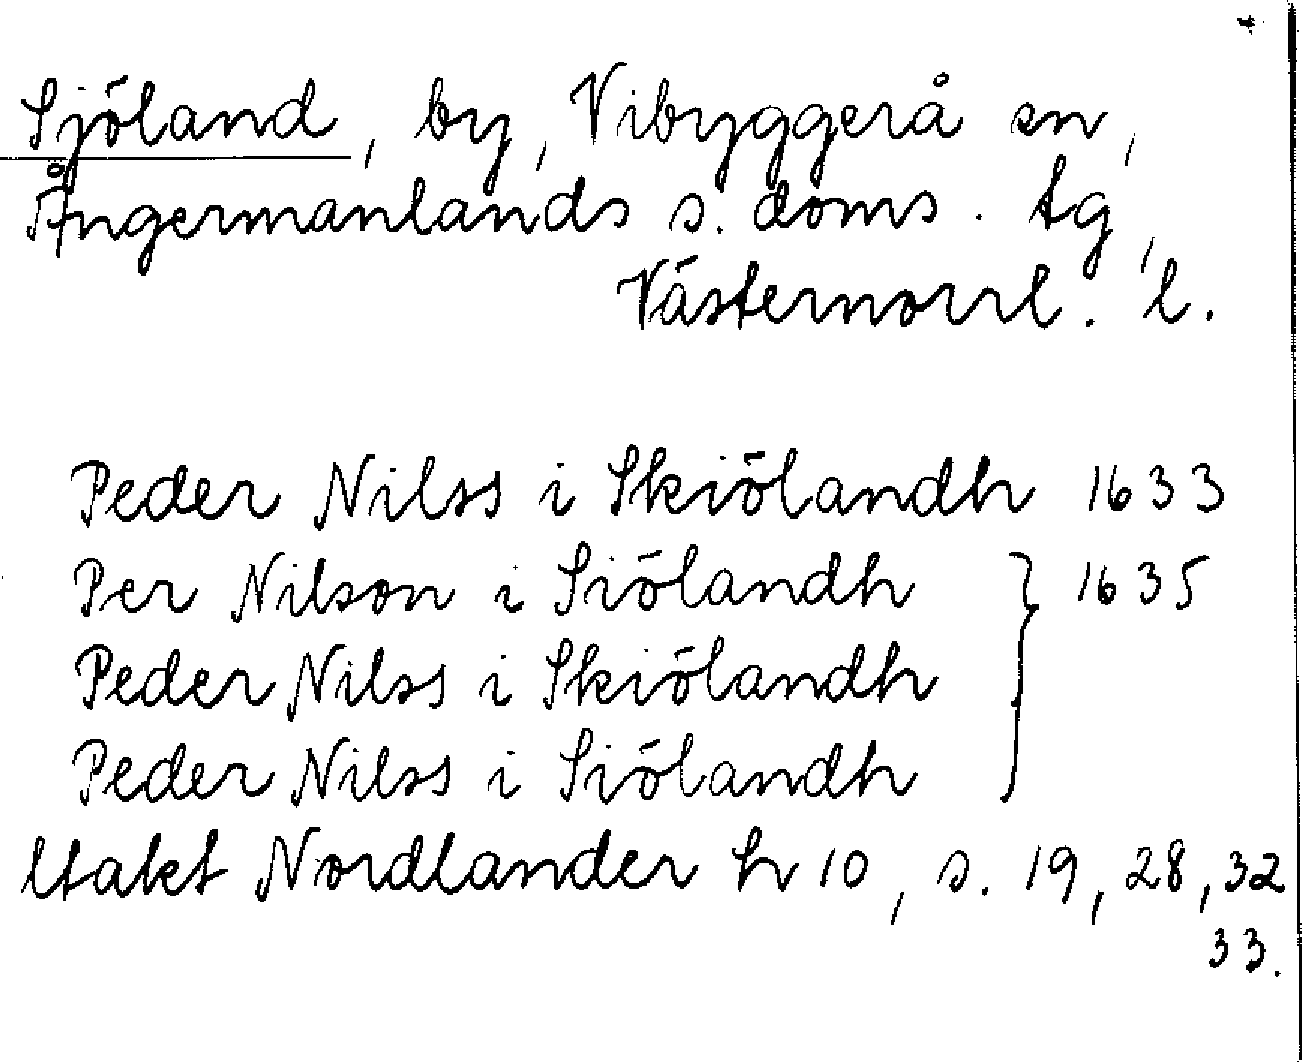 Sjöland, by, Vibyggerå sn,
Ångermanlands s. doms. tg,
Västernorrl. l.
Peder Nilss i Skiölandh 1633
Per Nilson i Siölandh } 1635
Peder Nilss i Skiölandh
Peder Nilss i Siölandh
Utakt Nordlander h 10, s. 19, 28, 32
33.